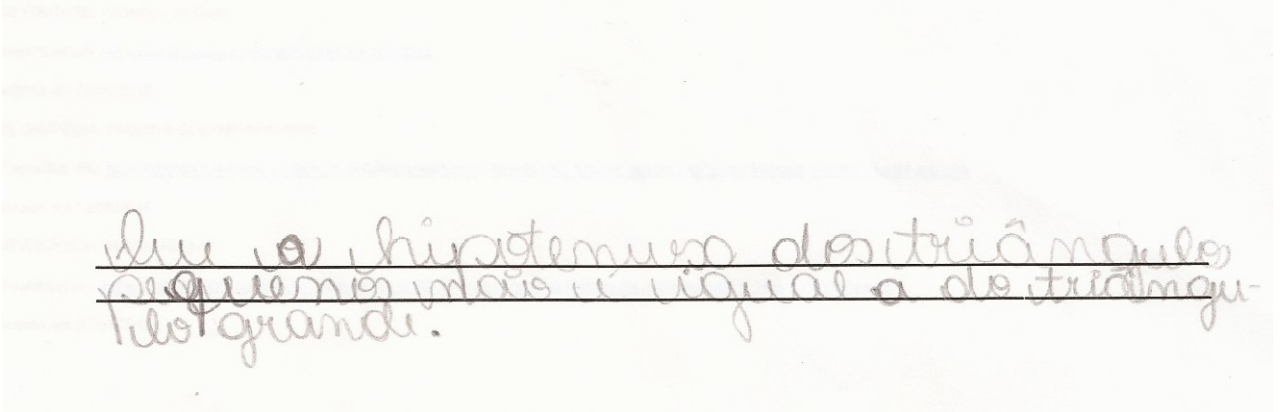 a hipotenusa dos triângulo
pequenos não é iguial a do triângu-
lo grande.